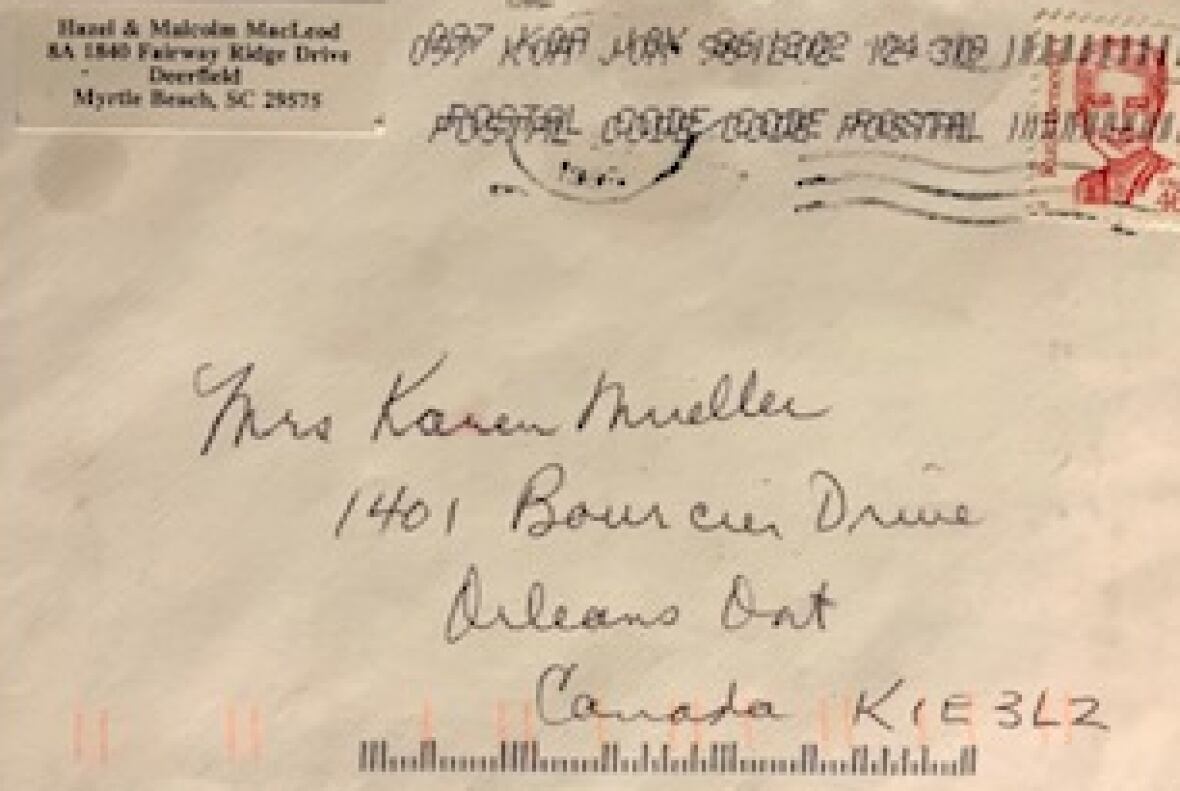 Hazel & Malcolm MacLeod
8A 1840 Fairway Ridge Drive
Deerfield
Myrtle Beach, SC 29575
POSTAL CODE CODE POSTAL
Mrs Karen Mueller
1401 Bourcier Drive
Orleans Ont
Canada K1E 3L2